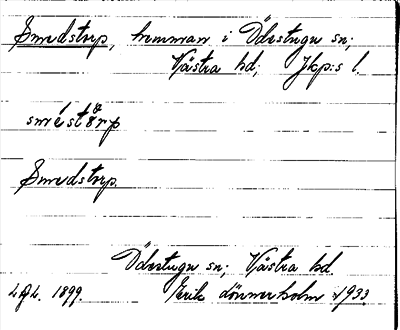 Smedstorp, hemman i Ödestugu sn;
Västra hd; Jkp:s l.
sméstårp
Smedstorp.
Ödestugu sn; Västra hd
L.G.L. 1899. Erik Lönnerholm 1933.